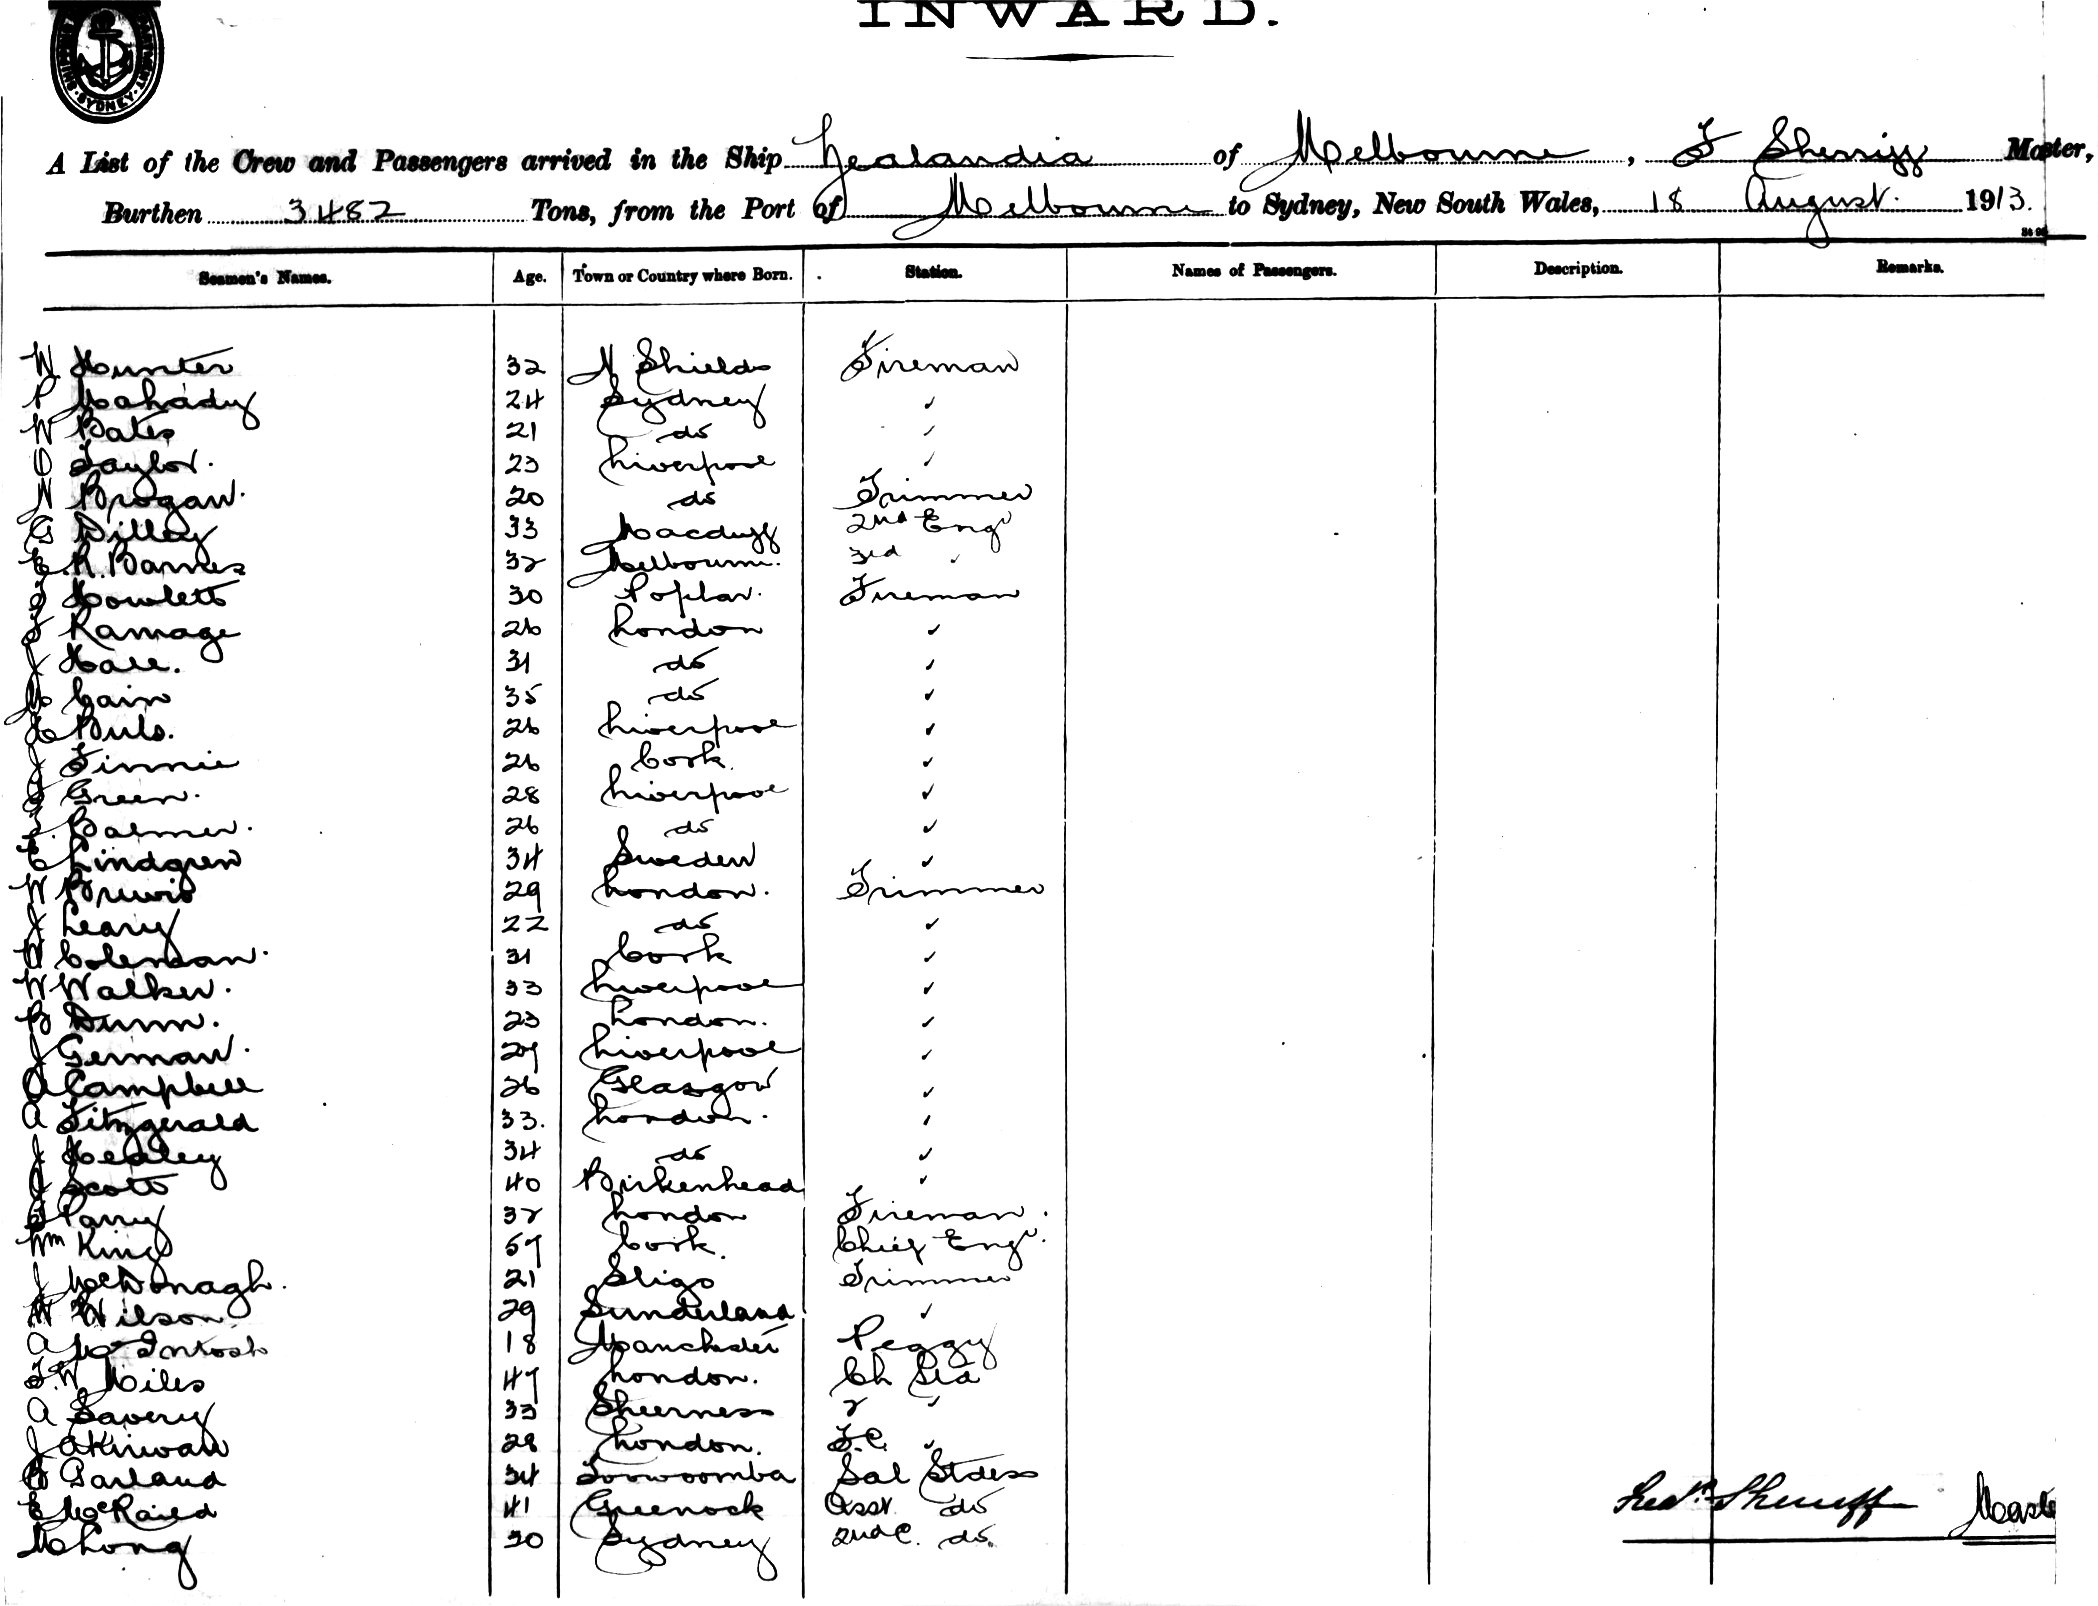 INWARD.
SHIPPING DEPARTMENT SYDNEY
A List of the Crew and Passengers arrived in the Ship Zealandia of Melbourne, F Sherriff Master,
Burthen 3482 Tons, from the Port of Melbourne to Sydney, New South Wales, 18 August. 1913.
Seamen's Names. Age. Town or Country where Born. Station. Names of Passengers. Description. Remarks.
W Hunter 32 N Shields Fireman
P Mahady 24 Sydney ✓
W Bates 21 do ✓
O Taylor. 23 Liverpool ✓
N Brogan. 20 do Trimmer
G Dilley 33 Macduff 2nd Engr
E. R. Barnes 32 Melbourne. 3rd ✓
J Howlett 30 Poplar. Fireman
J Ramage 26 London ✓
J Hall. 31 do ✓
M Cain 35 do ✓
H Puls. 26 Liverpool ✓
J Finnie 26 Cork. ✓
J Green. 28 Liverpool ✓
Balmer. 26 do ✓
E Lindgren 34 Sweden ✓
W Brewis 29 London. Trimmer
J Leary 22 do ✓
W Coleman. 31 Cork ✓
W Walker. 33 Liverpool ✓
B Dunn. 23 London. ✓
J German. 29 Liverpool ✓
A Campbell 26 Glasgow ✓
A Fitzgerald 33. London. ✓
J Healey 34 do ✓
J Scott 40 Birkenhead ✓
J Parry 32 London Fireman.
Wm King 57 Cork. Chief Engr.
J McDonagh. 21 Sligo Trimmer
W Wilson 29 Sunderland ✓
A McIntosh 18 Manchester Peggy
F. W Miles 47 London. Ch Std
A Savery 33 Sheerness 2 ✓
J A Kirwan 28 London. F.C. ✓
B Garland 34 Toowoomba Sal Stdess
E McRaild 41 Greenock Asst do
M Long 30 Sydney 2nd C. do.
Fredk Sherriff Maste